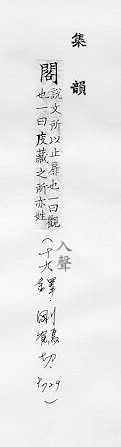 集韻
閣
說文所以止扉也一曰觀
也一曰庋藏之所亦姓
入聲
(十九鐸.剛鶴切.